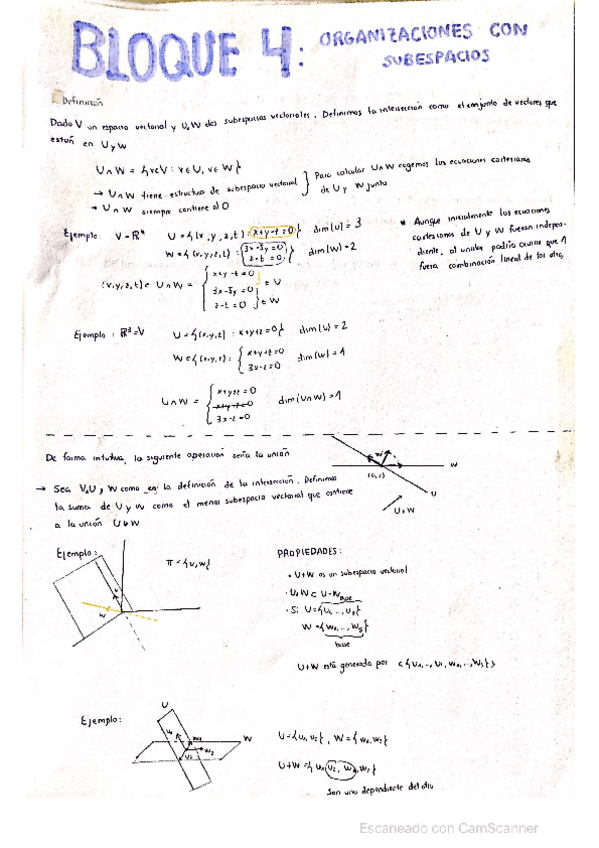 BLOQUE 4: ORGANIZACIONES CON
SUBESPACIOS
Definición
Dado V un espacio vectorial y U,W dos subespacios vectoriales. Definimos la intersección como el conjunto de vectores que
están en U y W
U∩W = {v∈V : v∈U, v∈W}
→ U∩W tiene estructura de subespacio vectorial
→ U∩W siempre contiene al 0
} Para calcular U∩W cogemos las ecuaciones cartesianas
de U y W junto
Ejemplo: V=R⁴ U={(x,y,z,t): x+y-t=0} dim(U)=3
W={(x,y,z,t): 3x-5y=0 z-t=0} dim(W)=2
(x,y,z,t)∈ U∩W =
{ x+y-t=0
3x-5y=0 } ∈ U
z-t=0 } ∈ W
* Aunque inicialmente las ecuaciones
cartesianas de U y W fueran indepen-
diente, al unirlas podría ocurrir que 1
fuera combinación lineal de las otras
Ejemplo: R³=V U={(x,y,z): x+y+z=0} dim(U)=2
W={(x,y,z): { x+y+z=0 dim(W)=1
3x-z=0
U∩W = { x+y+z=0 dim(U∩W)=1
x+y+z=0
3x-z=0
De forma intuitiva, la siguiente operación sería la unión
→ Sea V,U y W como en la definición de la intersección. Definimos
la suma de U y W como el menor subespacio vectorial que contiene
a la unión U∪W
W
(0,0)
U
U+W
Ejemplo:
π={u,w}
u
w
PROPIEDADES:
· U+W es un subespacio vectorial
· U,W ⊂ U+W
· Si U={u₁,...,uᵣ}
base
W={w₁,...,wₛ}
base
U+W está generado por <{u₁,...,uᵣ,w₁,...,wₛ}>
Ejemplo:
U
W
w₂
U={u₁,u₂}, W={w₁,w₂}
U+W={u₁,u₂,w₁,w₂}
son uno dependiente del otro
Escaneado con CamScanner